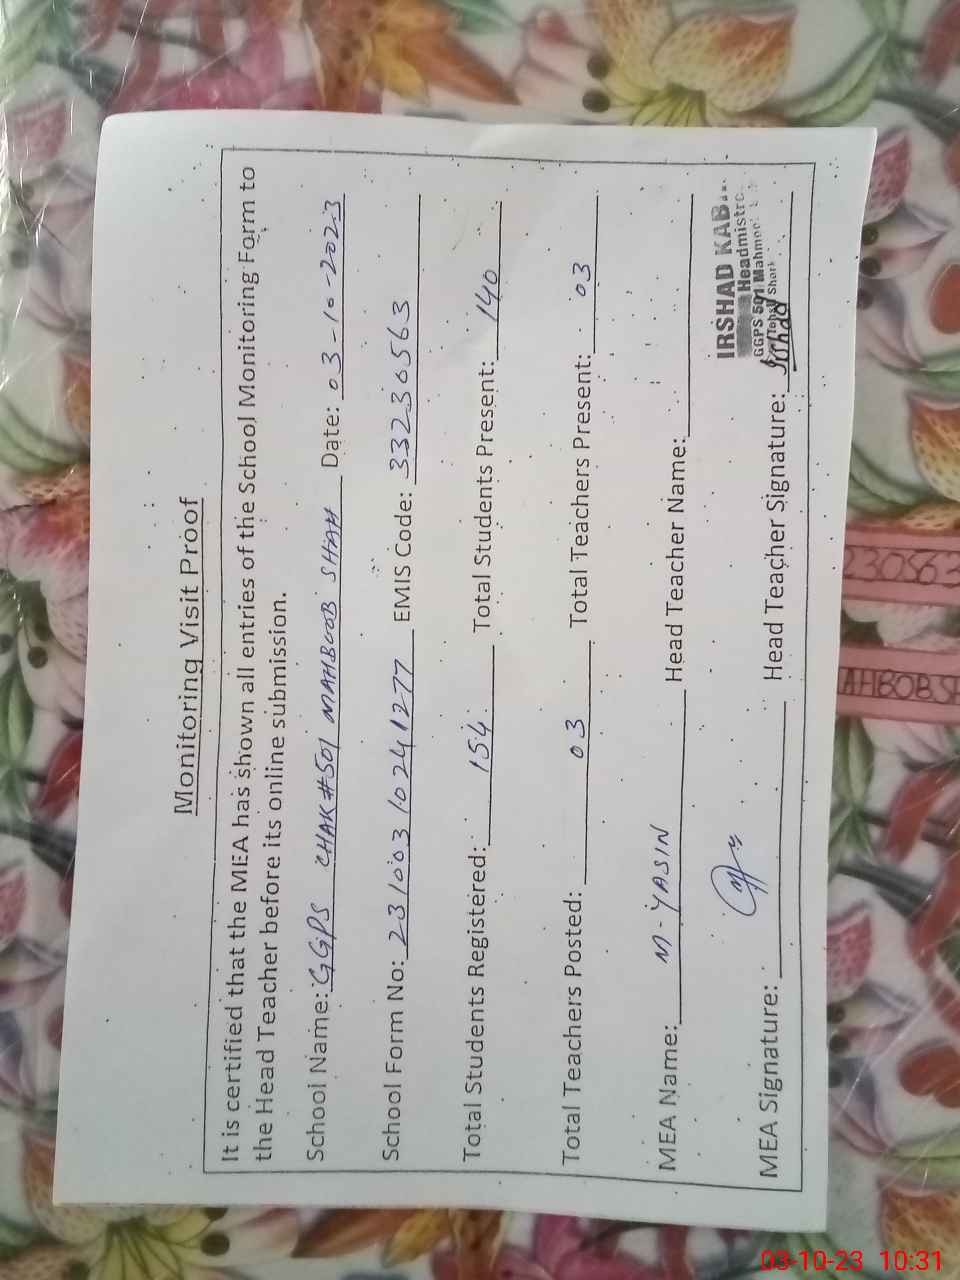 Monitoring Visit Proof
It is certified that the MEA has shown all entries of the School Monitoring Form to
the Head Teacher before its online submission.
School Name: GGPS CHAK#501 MAHBOOB SHAH Date: 03-10-2023
School Form No: 23100310241277 EMIS Code: 33230563
Total Students Registered: 154 Total Students Present: 140
Total Teachers Posted: 03 Total Teachers Present: 03
MEA Name: M-YASIN Head Teacher Name:
IRSHAD KAB
Headmistre
GGPS 501 Mahmoo
Shork
MEA Signature: Head Teacher Signature: Irshad
230563
AHBOBSH
03-10-23 10:31